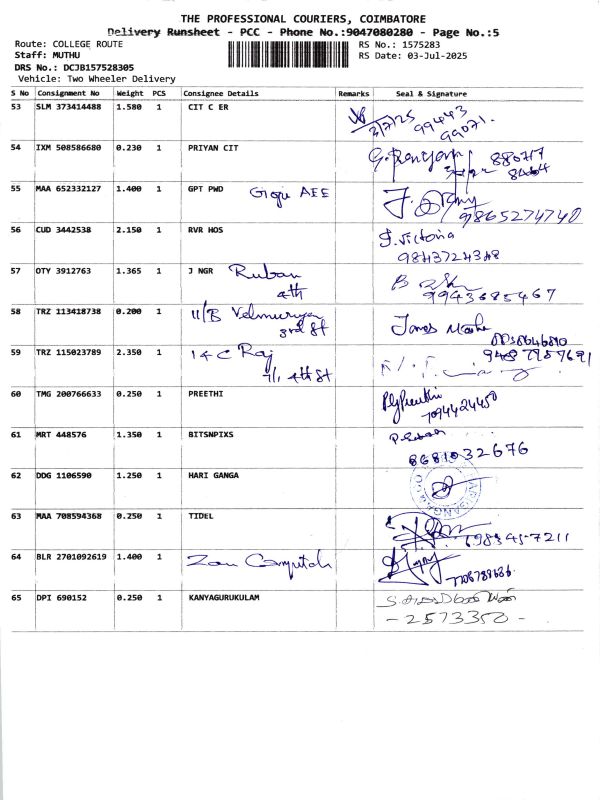 THE PROFESSIONAL COURIERS, COIMBATORE
Delivery Runsheet - PCC - Phone No.:9047080280 - Page No.:5
Route: COLLEGE ROUTE
RS No.: 1575283
Staff: MUTHU
RS Date: 03-Jul-2025
DRS No.: DCJB157528305
Vehicle: Two Wheeler Delivery
S No Consignment No Weight PCS Consignee Details Remarks Seal & Signature
53 SLM 373414488 1.580 1 CIT C ER
3/7/25 99443
99071.
54 IXM 508586680 0.230 1 PRIYAN CIT
55 MAA 652332127 1.400 1 GPT PWD AEE
9865274740
56 CUD 344253B 2.150 1 RVR HOS J. Victoria
9843724348
57 OTY 3912763 1.365 1 J NGR Ruban
4th
9943685467
58 TRZ 113418738 0.200 1 11/B Velmurugan
3rd St
James
59 TRZ 115023789 2.350 1 14 C Raj
7/1 4th St
60 TMG 200766633 0.250 1 PREETHI
7094424450
61 MRT 448576 1.350 1 BITSNPIXS
8681032676
62 DDG 1106590 1.250 1 HARI GANGA
63 MAA 708594368 0.250 1 TIDEL
64 BLR 2701092619 1.400 1
65 DPI 690152 0.250 1 KANYAGURUKULAM
- 2573350 -